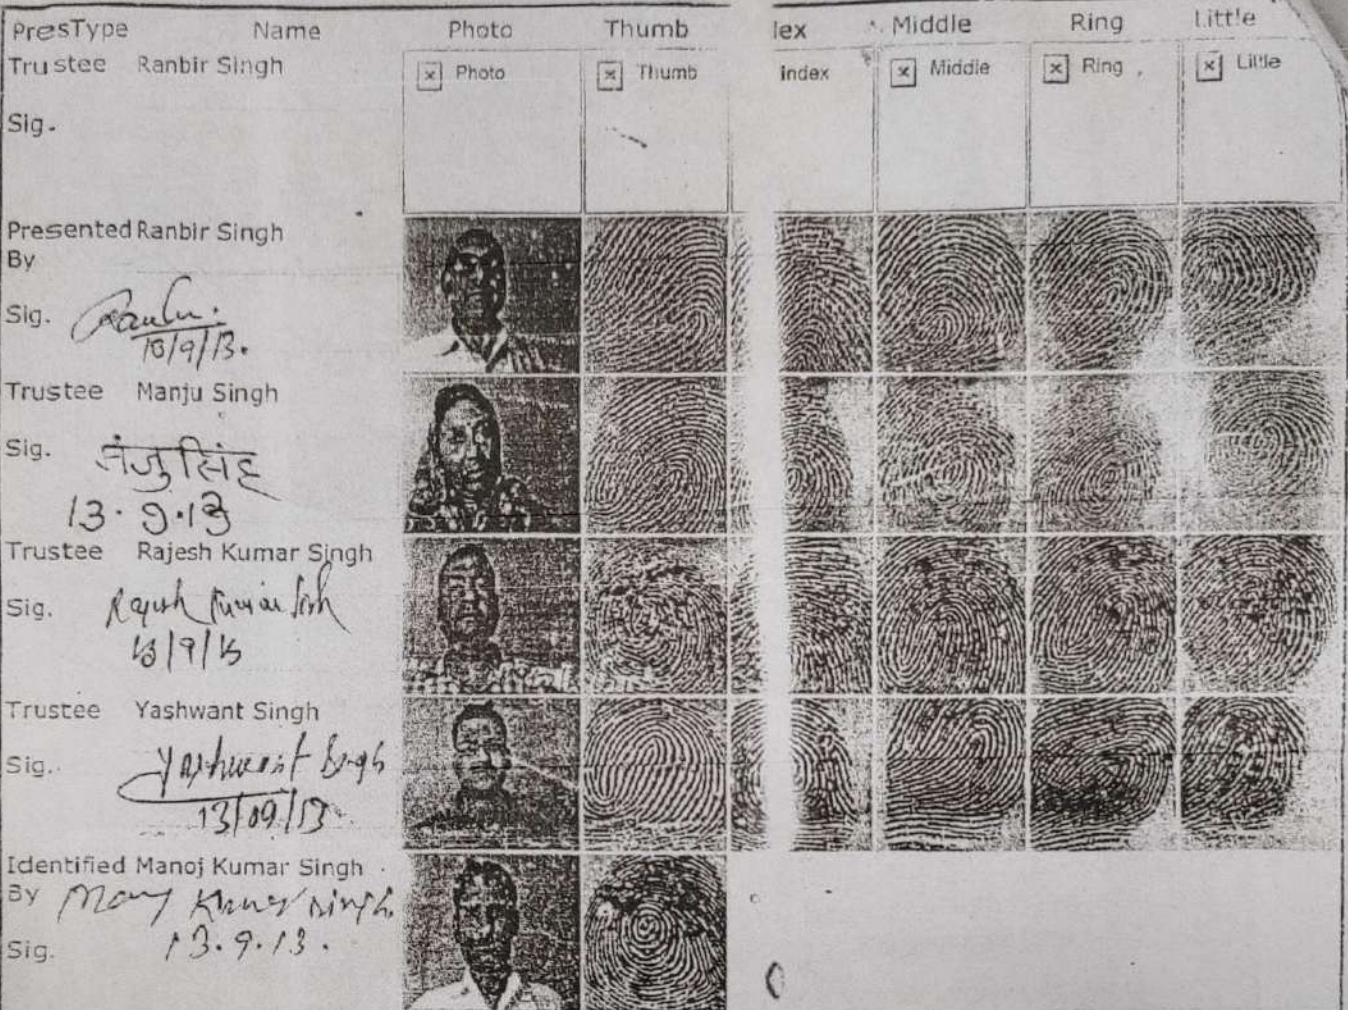 PresType Name Photo Thumb lex Middle Ring Little
Trustee Ranbir Singh Photo Thumb Index Middle Ring Little
Sig.
Presented Ranbir Singh
By
Sig.
13/9/13.
Trustee Manju Singh
Sig. मंजु सिंह
13.9.13
Trustee Rajesh Kumar Singh
Sig. Rajesh Kumar Singh
13/9/13
Trustee Yashwant Singh
Sig. Yashwant Singh
13/09/13
Identified Manoj Kumar Singh
By Manoj Kumar Singh
Sig. 13.9.13.